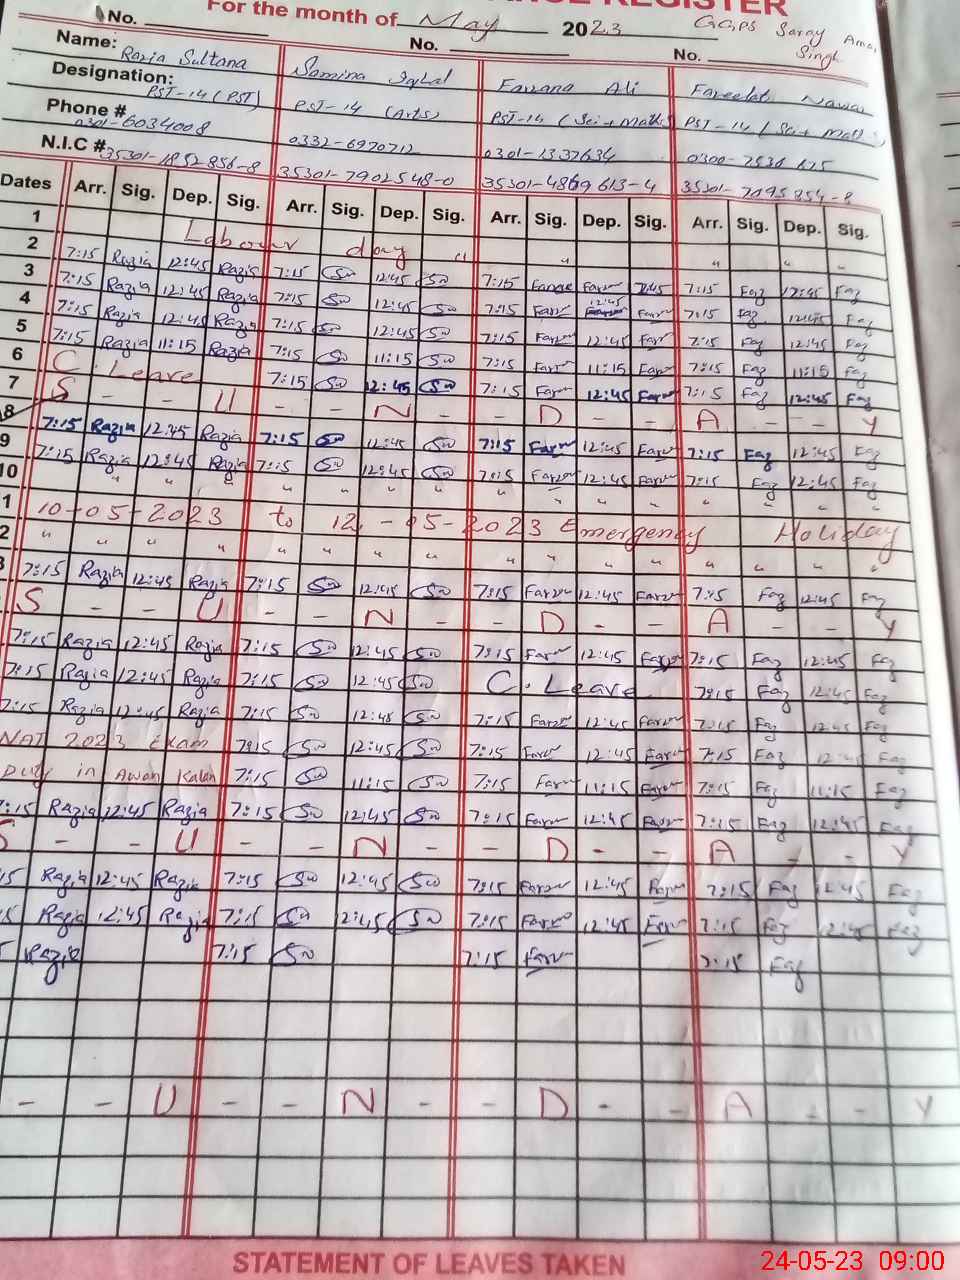 REGISTER
For the month of May 2023 GGPS Saray Amar Singh
No. No. No.
Name: Razia Sultana Samina Iqbal Farzana Ali
Designation: PST-14 (PST) PST-14 (Arts) PST-14 (Sci + Math) PST-14 (Sci + Math)
Phone # 0301-6034008 0332-6970712 0301-1337634
N.I.C # 35301-1852856-8 35301-7902548-0 35301-4869613-4 35301-7095854-8
Dates Arr. Sig. Dep. Sig. Arr. Sig. Dep. Sig. Arr. Sig. Dep. Sig. Arr. Sig. Dep. Sig.
1 Labour day " " " " "
2 7:15 Razia 12:45 Razia 7:15 Sa 12:45 Sa 7:15 Farz 7:15 Faz 12:45 Faz
3 7:15 Razia 12:45 Razia 7:15 Sa 12:45 Sa 7:15 Farz 12:45 Farz 7:15 Faz 12:45 Faz
4 7:15 Razia 12:45 Razia 7:15 Sa 12:45 Sa 7:15 Farz 12:45 Farz 7:15 Faz 12:45 Faz
5 7:15 Razia 11:15 Razia 7:15 Sa 11:15 Sa 7:15 Farz 11:15 Farz 7:15 Faz 11:15 Faz
6 C. Leave 7:15 Sa 12:45 Sa 7:15 Farz 12:45 Farz 7:15 Faz 12:45 Faz
7 S - - U - - N - - D - - A - - Y
8 7:15 Razia 12:45 Razia 7:15 Sa 12:45 Sa 7:15 Farz 12:45 Farz 7:15 Faz 12:45 Faz
9 7:15 Razia 12:45 Razia 7:15 Sa 12:45 Sa 7:15 Farz 12:45 Farz 7:15 Faz 12:45 Faz
10 " " " " " " " " " " " " " "
1 10-05-2023 to 12-05-2023 Emergency Holiday
2 " " " " " " " " " " " " " " "
3 7:15 Razia 12:45 Razia 7:15 Sa 12:45 Sa 7:15 Farz 12:45 Farz 7:15 Faz 12:45 Faz
S - - U - - N - - D - - A - - Y
7:15 Razia 12:45 Razia 7:15 Sa 12:45 Sa 7:15 Farz 12:45 Farz 7:15 Faz 12:45 Faz
7:15 Razia 12:45 Razia 7:15 Sa 12:45 Sa C. Leave 7:15 Faz 12:45 Faz
7:15 Razia 12:45 Razia 7:15 Sa 12:45 Sa 7:15 Farz 12:45 Farz 7:15 Faz 12:45 Faz
NAT 2023 Exam 7:15 Sa 12:45 Sa 7:15 Farz 12:45 Farz 7:15 Faz 12:45 Faz
Duty in Awan Kalan 7:15 Sa 11:15 Sa 7:15 Farz 11:15 Farz 7:15 Faz 11:15 Faz
7:15 Razia 12:45 Razia 7:15 Sa 12:45 Sa 7:15 Farz 12:45 Farz 7:15 Faz 12:45 Faz
S - - U - - N - - D - - A - - Y
15 Razia 12:45 Razia 7:15 Sa 12:45 Sa 7:15 Farz 12:45 Farz 7:15 Faz 12:45 Faz
15 Razia 12:45 Razia 7:15 Sa 12:45 Sa 7:15 Farz 12:45 Farz 7:15 Faz 12:45 Faz
Razia 7:15 Sa 7:15 Farz 7:15 Faz
- - U - - N - - D - - A - - Y
STATEMENT OF LEAVES TAKEN
24-05-23 09:00